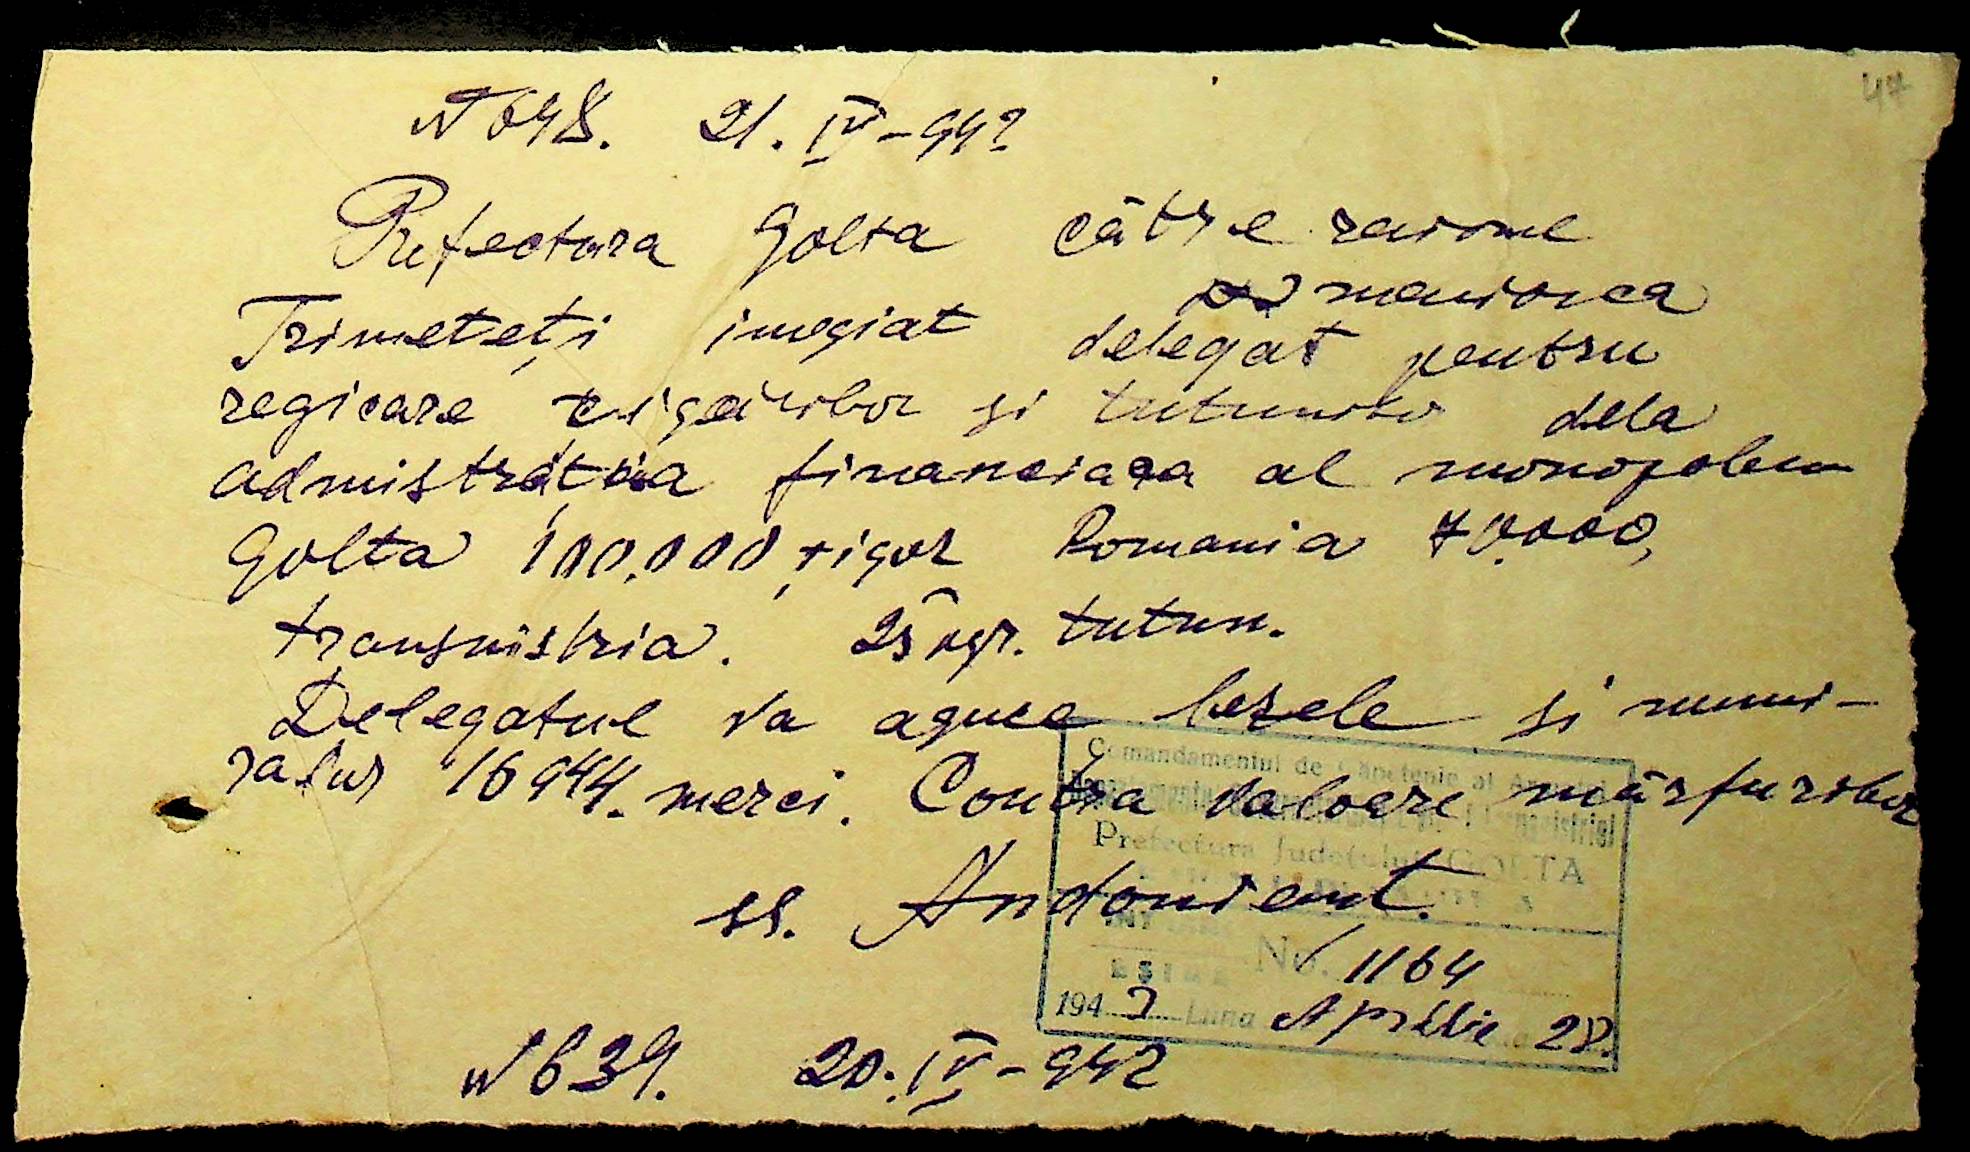 47
N 648. 21. IV - 942
Prefectura Golta către raione
Trimeteți imegiat delegat pentru
regicare țigărilor și tutunilor dela
admistrația financiara al monopolem
Golta 100,000 țigar Romania 70.000,
transnistria. 25 kgr. tutun.
Delegatul va aguce lezele și numi-
ratur 16944. merci. Contra valoare mărfurilor
ss. Andonient.
Comandamentul de Căpetenie al Armatei
Prefectura Județului GOLTA
No. 1164
1942 Luna Aprilie 28.
N 639. 20. IV - 942